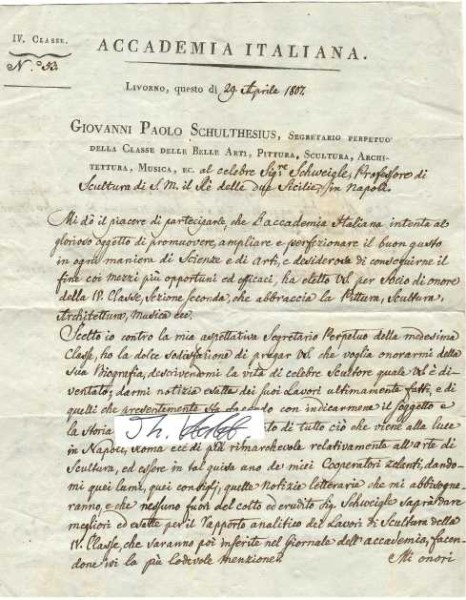 IV. CLASSE.
N.° 53.
ACCADEMIA ITALIANA.
LIVORNO, questo dì 29 Aprile 1807.
GIOVANNI PAOLO SCHULTHESIUS, SEGRETARIO PERPETUO
DELLA CLASSE DELLE BELLE ARTI, PITTURA, SCULTURA, ARCHI-
TETTURA, MUSICA, EC. al celebre Sig.re Schweigle, Professore di
Scultura di S. M. il Rè delle due Sicilie, in Napoli
Mi dò il piacere di parteciparle, che l'accademia Italiana intenta al
glorioso oggetto di promuovere, ampliare e perfezionare il buon gusto
in ogni maniera di Scienze e di Arti, e desiderosa di conseguirne il
fine coi mezzi più opportuni ed efficaci, ha eletto VS. per Socio di onore
della IV. Classe, Sezione seconda, che abbraccia la Pittura, Scultura,
Architettura, Musica ecc.
Scelto io contro la mia aspettativa Segretario Perpetuo della medesima
Classe, ho la dolce sodisfazione di pregar VS. che voglia onorarmi della
Sua Biografia, descrivendomi la vita di celebre Scultore quale VS. è di-
ventato; darmi notizia esatta dei suoi Lavori ultimamente fatti, e di
quelli che presentemente sta facendo con indicarmene il soggetto e
la Storia to di tutto ciò che viene alla luce
in Napoli, Roma ecc di più rimarchevole relativamente all'arte di
Scultura, ed essere in tal guisa uno de' miei Cooperatori zelanti, dando-
mi quei lumi, quei consigli, quelle notizie letterarie che mi abbisogne-
ranno, e che nessuno fuori del colto ed erudito Sig. Schweigle saprà dare
migliori ed esatte per il rapporto analitico dei Lavori di Scultura della
IV. Classe, che saranno poi inserite nel Giornale dell'accademia, facen-
done ivi la più lodevole menzione.
Mi onori